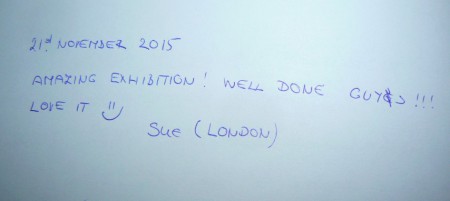 21st NOVEMBER 2015
AMAZING EXHIBITION! WELL DONE GUYS!!!
LOVE IT
Sue (LONDON)